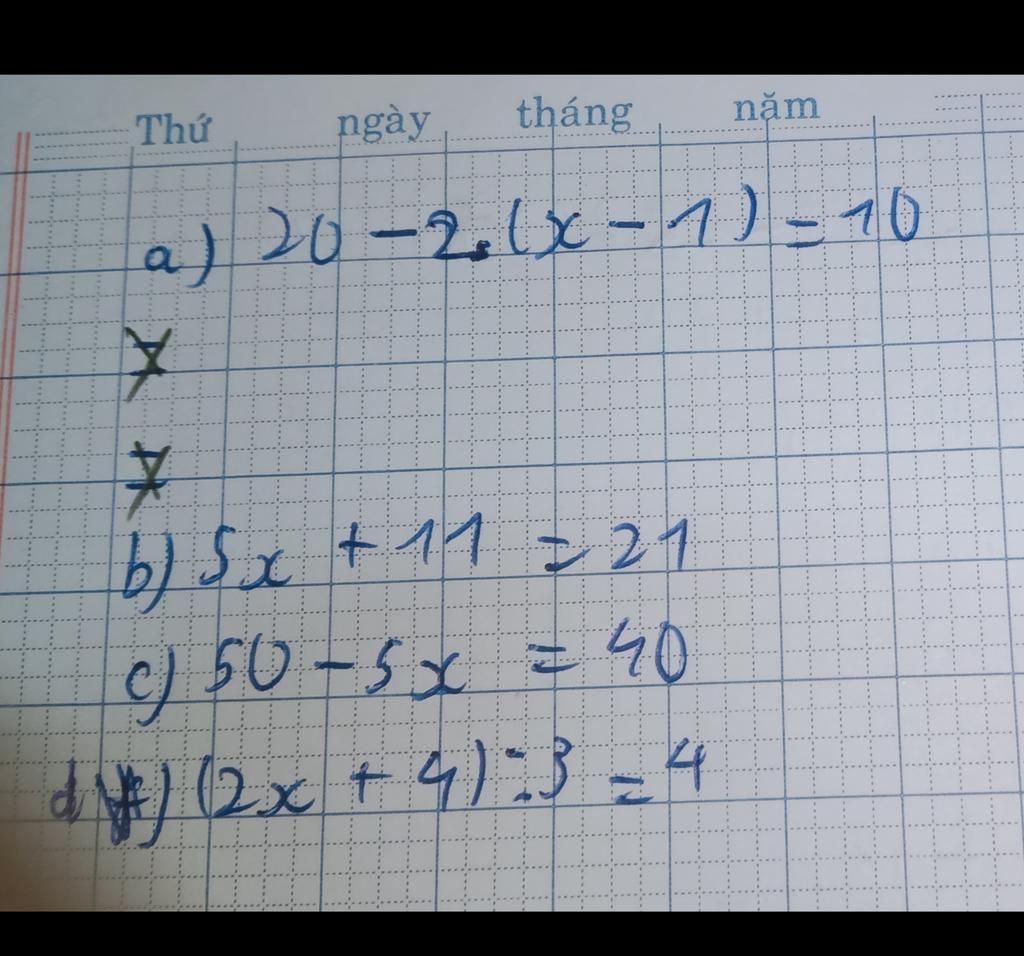 Thứ ngày tháng năm
a) 20 - 2.(x - 1) = 10
b) 5x + 11 = 21
c) 50 - 5x = 40
d) (2x + 4) : 3 = 4